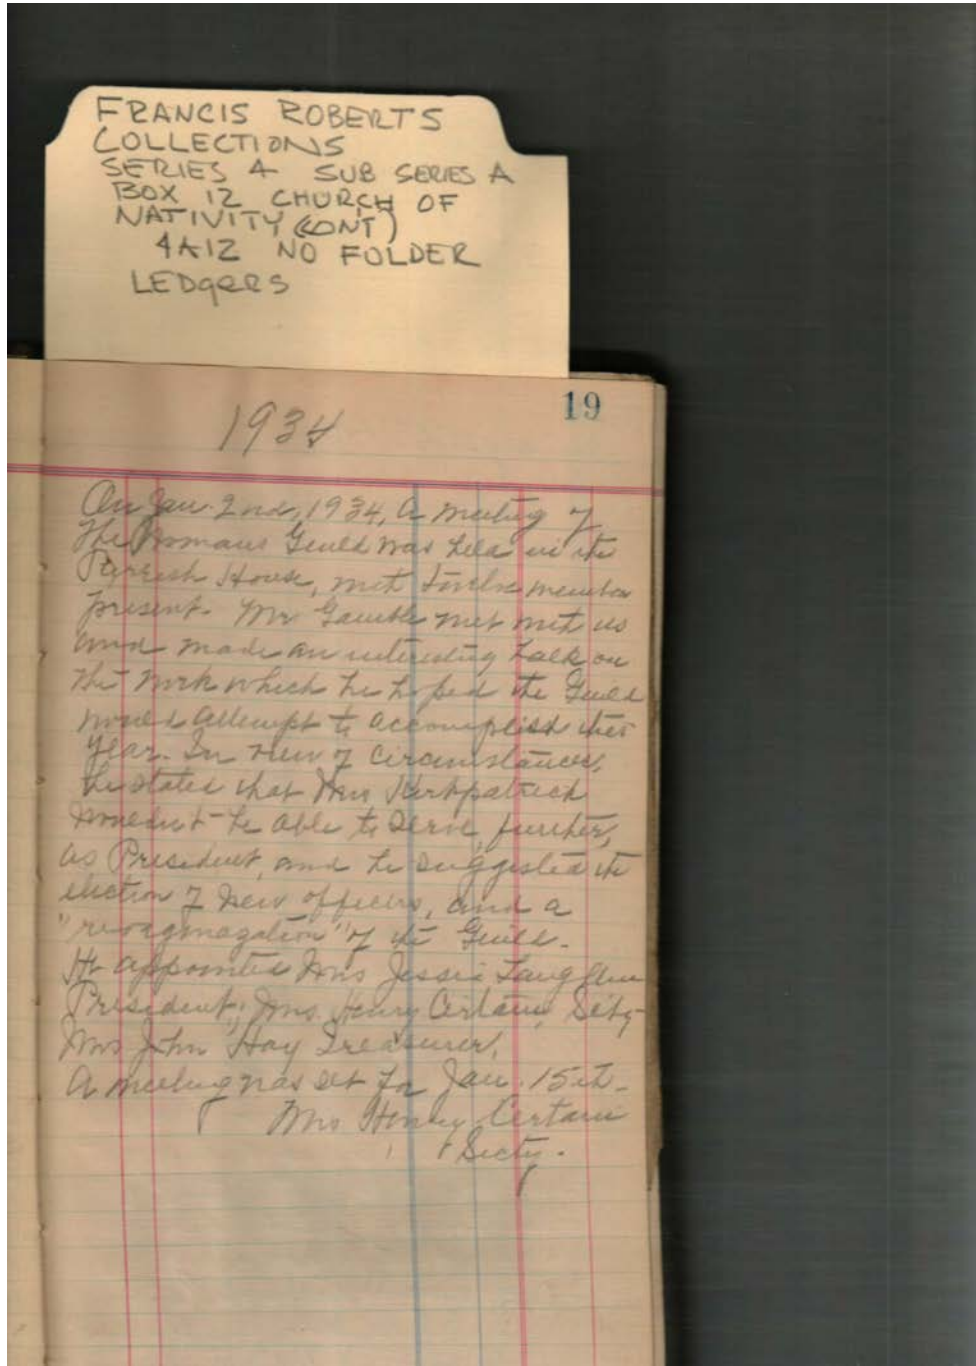 FRANCIS ROBERTS
COLLECTIONS
SERIES 4 SUB SERIES A
BOX 12 CHURCH OF
NATIVITY (CONT)
4A12 NO FOLDER
LEDgeRS
19
1934
On Jan. 2nd, 1934, a meeting of
the Womans Guild was held in the
Parish House, with twelve member
present. Mr Gamble met with us
and made an interesting talk on
the work which he hoped the Guild
would attempt to accomplish this
year. In view of circumstances,
he stated that Mrs Kirkpatrick
wouldn't be able to serve, further,
as President, and he suggested the
election of new officers, and a
"reorganazation" of the Guild.
He appointed Mrs Jessie
President; Mrs. Henry Certain, Secty-
Mrs John Hay Treasurer.
A meeting was set for Jan. 15th.
Mrs Henry Certain
Secty.